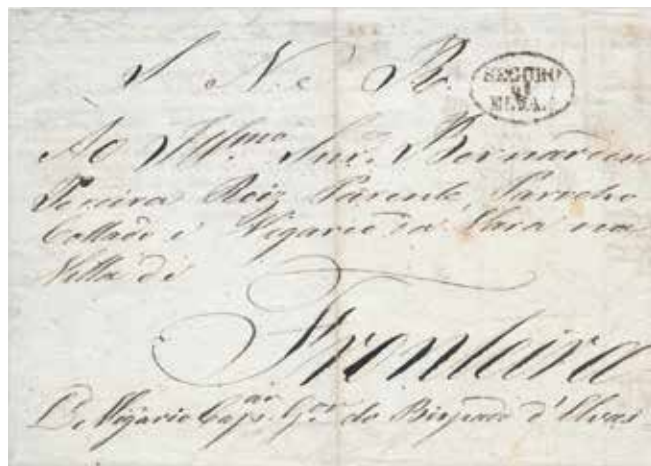 S. N. e R.
SEGURO
d'
ELVA.
Ao Illmo. Snr. Bernardino
Pereira Roiz Parente, Parocho
Collado e Vigario da Vara na
Villa de
Fronteira
Do Vigario Capar. Gal. do Bispado d'Elvas